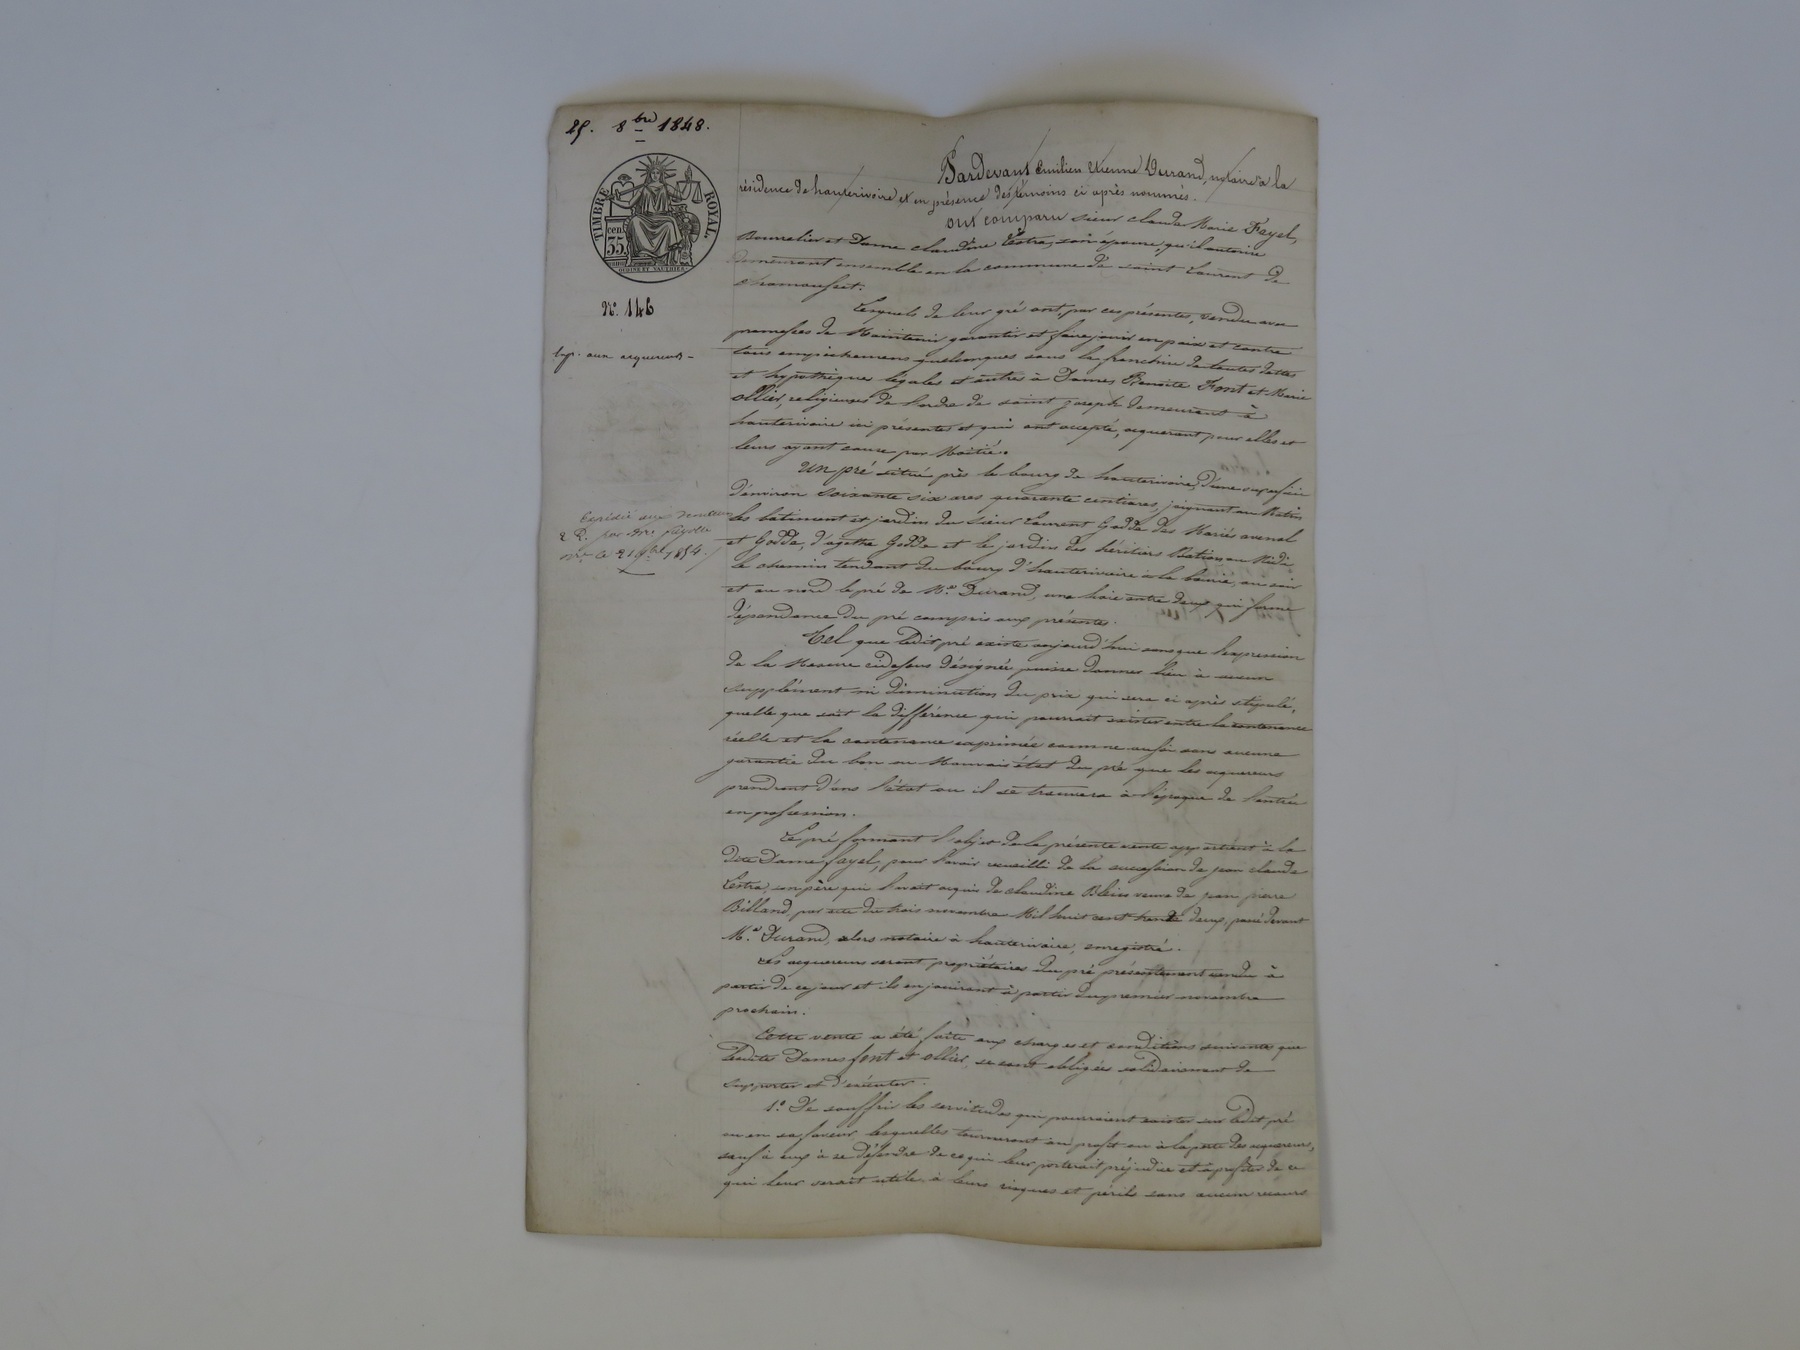 25. 8bre 1848.
TIMBRE ROYAL.
cen.
35
OUDINE ET VAUTHIER
N°. 146
Exp. aux acquereurs -
Expédié aux
le 21 9bre 1854.
Pardevant Emilien Etienne Durand, notaire à la
résidence de hauterivoire et en présence des témoins ci après nommés.
ont comparu sieur claude Marie Fayel,
Bourrelier et Dame claudine Lestra, son épouse, qu'il autorise
demeurant ensemble en la commune de saint Laurent de
chamousset.
Lesquels de leur gré ont, par ces présentes, vendu avec
promesses de Maintenir garantir et faire jouir en paix et contre
tous empêchemens quelconques sous la franchise de toutes dettes
et hypothèques légales et autres à Dames Benoite Font et Marie
ollier, religieuses de l'ordre de saint joseph demeurant à
hauterivoire ici présentes et qui ont accepté, acquerant pour elles et
leurs ayant cause par Moitié.
Un pré situé près le bourg de hauterivoire, d'une superficie
d'environ soixante six ares quarante centiares, joignant au Matin
les batiment et jardin du sieur Laurent Godde des Mariés avenal
et Godde, d'agathe Godde et le jardin des héritiers Bation au Midi
le chemin tendant du bourg d'hauterivoire à la bourié, au soir
et au nord le pré de Me. Durand, une haie entre deux qui forme
dépendance du pré compris aux présentes.
Tel que ledit pré existe aujourd'hui sans que l'expression
de la Mesure cidessus désignée puisse donner lieu à aucun
supplément ni diminution du prix qui sera ci après stipulé,
quelle que soit la différence qui pourrait exister entre la contenance
réelle et la contenance exprimée comme aussi sans aucune
garantie du bon ou Mauvais état du pré que les acquereurs
prendront dans l'état ou il se trouvera à l'époque de l'entrée
en possession.
Le pré formant l'objet de la présente vente appartient à la
dite Dame fayel, pour l'avoir recueilli de la succession de jean claude
Lestra, son père qui l'avait acquis de claudine Blein veuve de jean pierre
Billand par acte du trois novembre Mil huit cent trente deux, passé devant
Me. Durand, alors notaire à hauterivoire, enregistré.
Les acquereurs seront propriétaires du pré présentement vendu à
partir de ce jour et ils en jouiront à partir du premier novembre
prochain.
Cette vente a été faite aux charges et conditions suivantes que
lesdites Dames font et ollier, se sont obligées solidairement de
supporter et d'exécuter.
1°. De souffrir les servitudes qui pourraient exister sur ledit pré
ou en sa faveur lesquelles tourneront au profit ou à la perte des acquereurs,
sauf à eux à se défendre de ce qui leur porterait préjudice et à profiter de ce
qui leur serait utile, à leurs risques et périls sans aucun recours